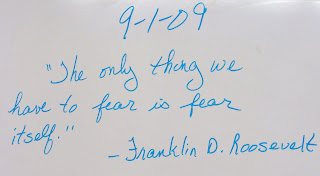 9-1-09
"The only thing we
have to fear is fear
itself."
- Franklin D. Roosevelt